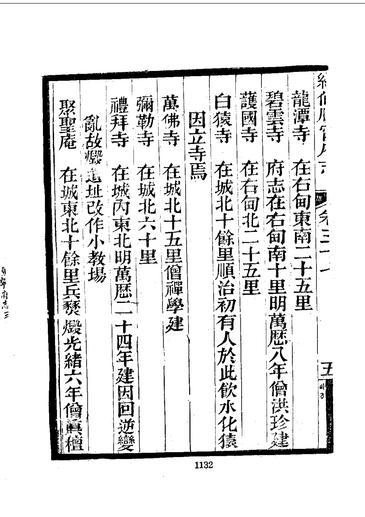 龍潭寺 在右甸東南二十五里
碧雲寺 府志在右甸南十里明萬歷八年僧洪珍建
護國寺 在右甸北二十五里
白猿寺 在城北十餘里順治初有人於此飲水化猿
因立寺焉
萬佛寺 在城北十五里僧禪學建
彌勒寺 在城北六十里
禮拜寺 在城內東北明萬歷二十四年建因回逆變
亂故燬遺址改作小教場
聚聖庵 在城東北十餘里兵燹燬光緒六年僧真檀
1132